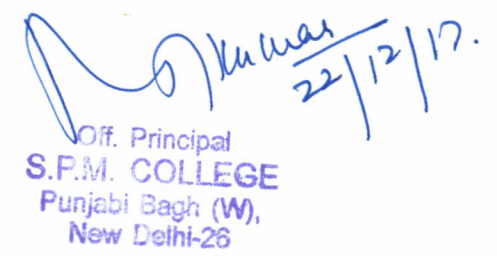 Rajkumar
22/12/17.
Off. Principal
S.P.M. COLLEGE
Punjabi Bagh (W),
New Delhi-26